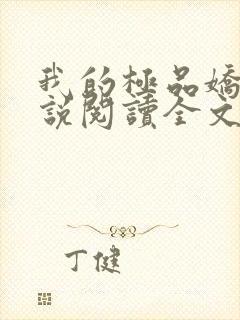 我的極品嬌
說閱讀全文
丁健